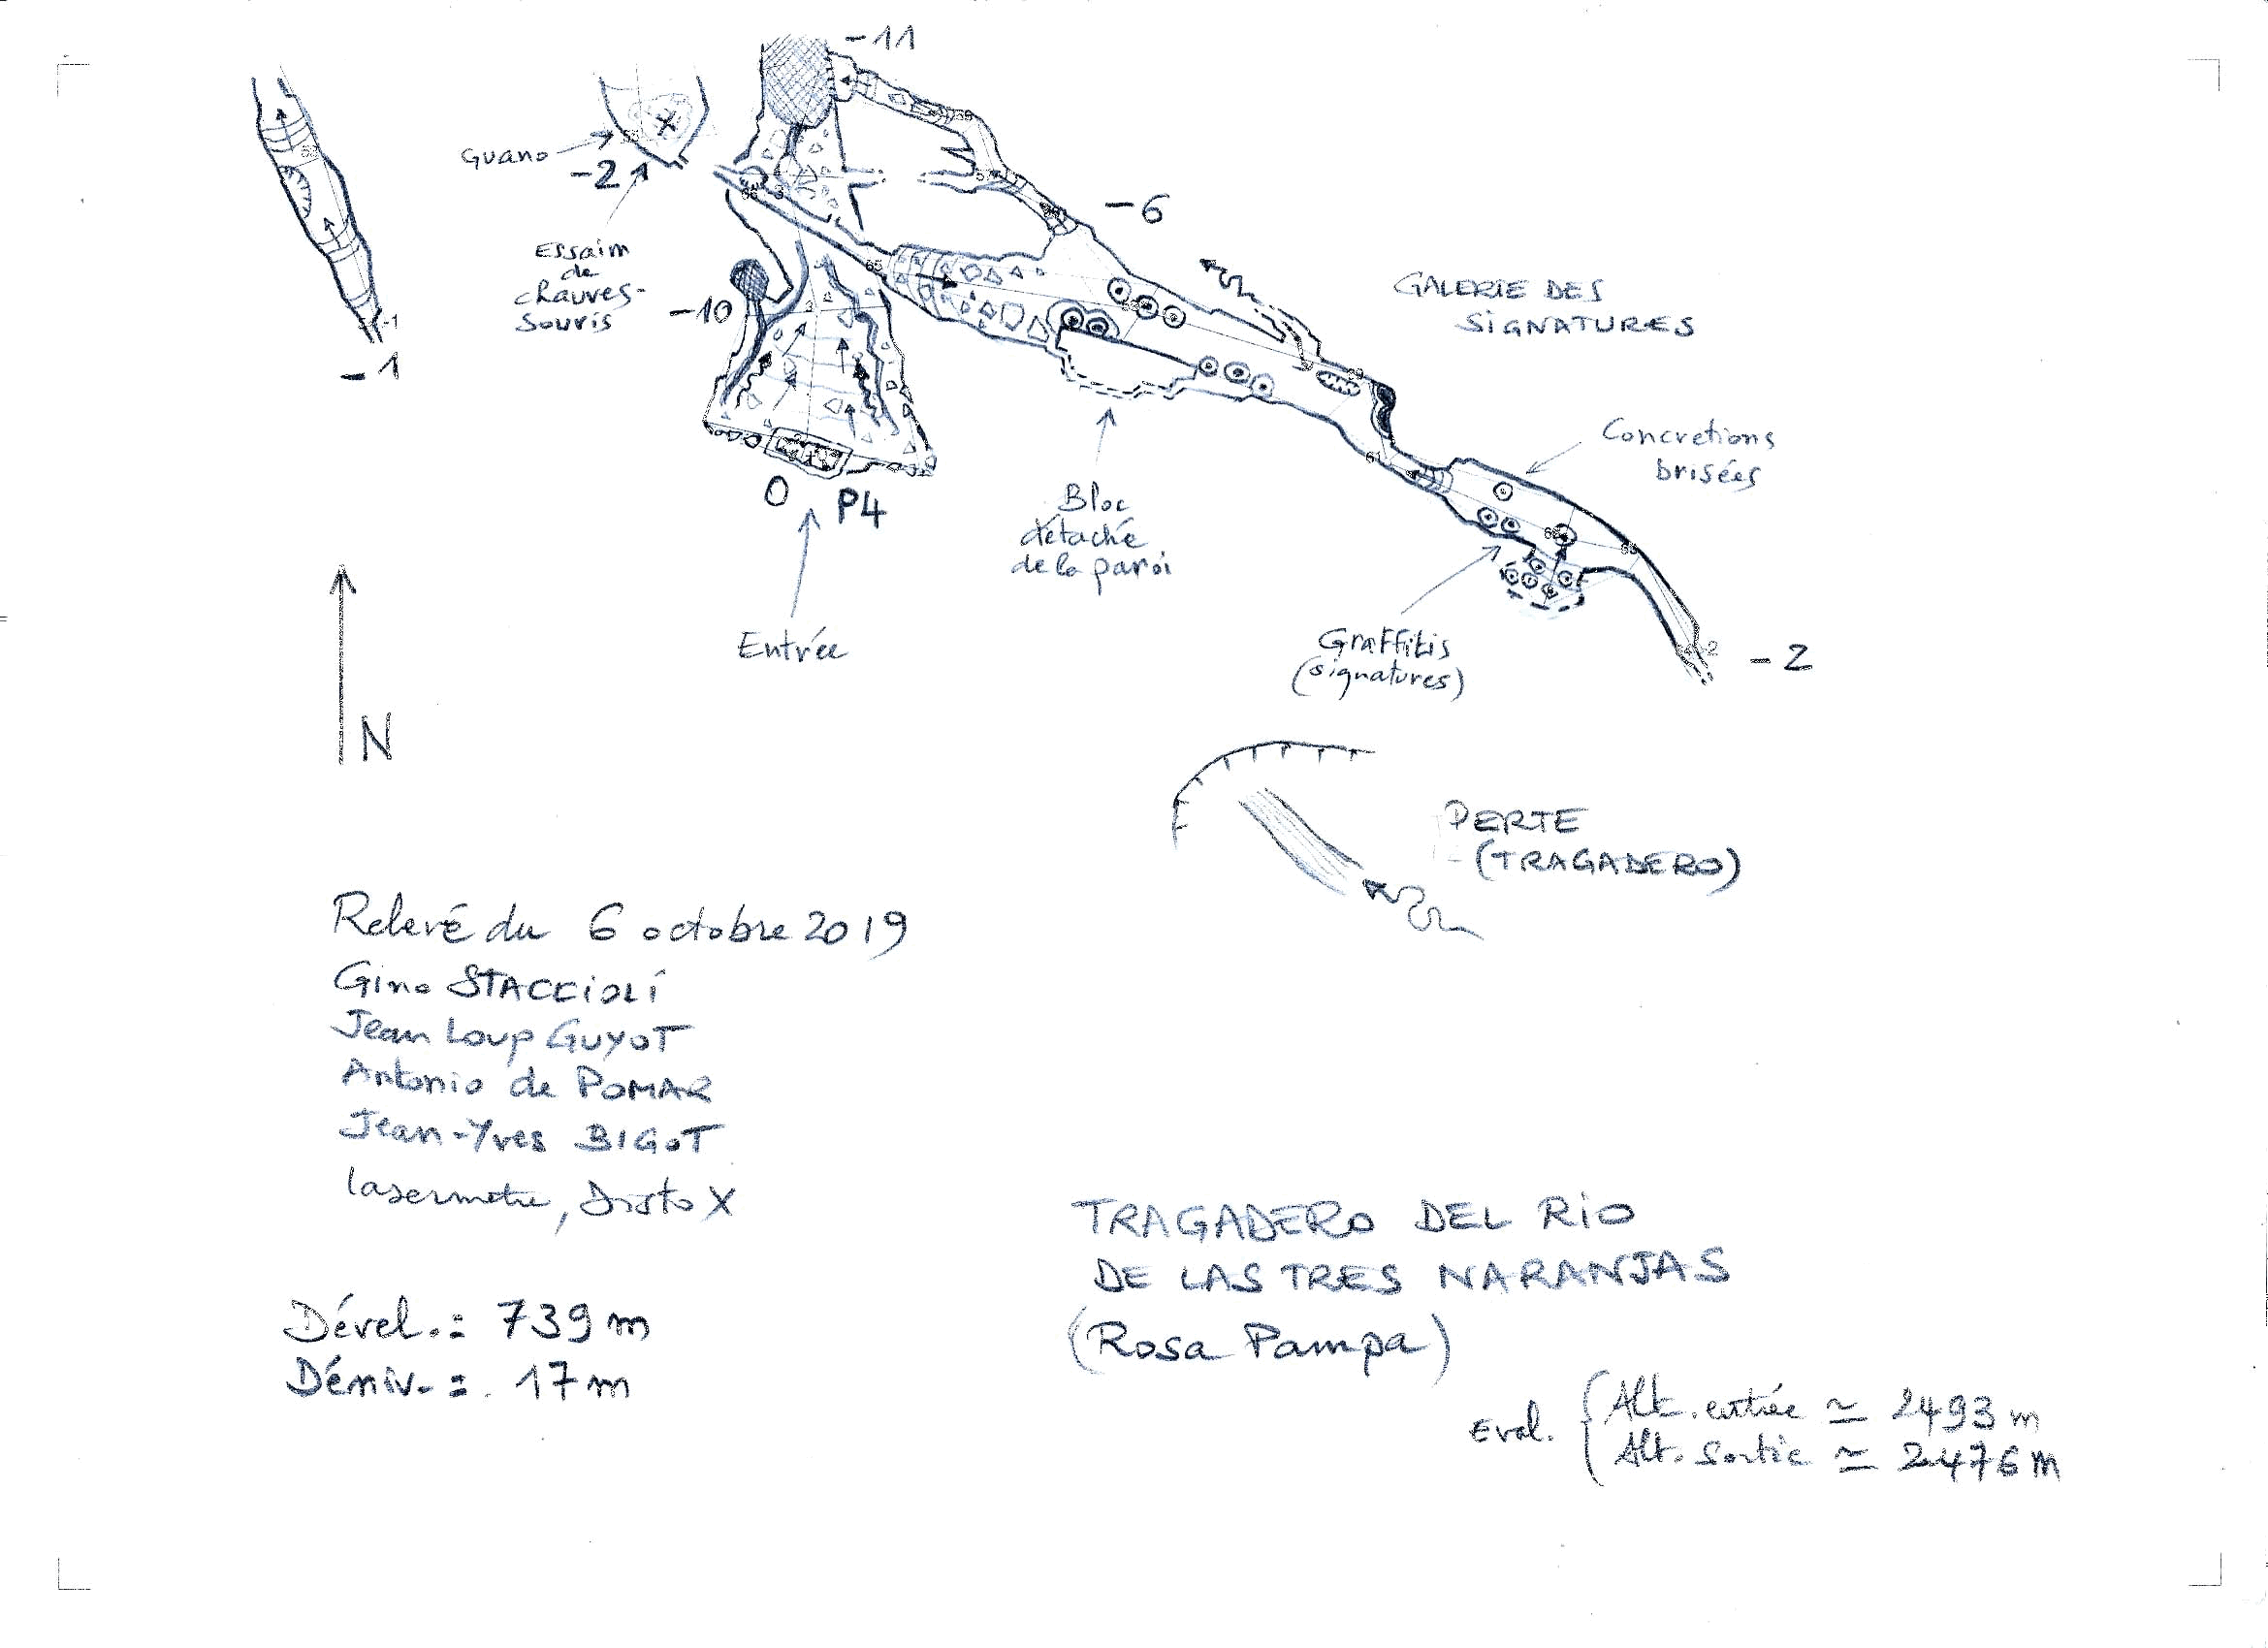 -11
Guano
-2
-6
Essaim
de
chauves-
souris
-10
GALERIE DES
SIGNATURES
-1
Concretions
brisées
0 P4
Bloc
détaché
de la paroi
Entrée
Graffitis
(signatures)
-2
N
PERTE
(TRAGADERO)
Relevé du 6 octobre 2019
Gino STACCIOLI
Jean Loup GUYOT
Antonio de POMAR
Jean-Yves BIGOT
lasermetre, Disto X
TRAGADERO DEL RIO
DE LAS TRES NARANJAS
(Rosa Pampa)
Dével. = 739 m
Déniv. = 17 m
Eval.
Alt. entrée ≃ 2493 m
Alt. Sortie ≃ 2476 m